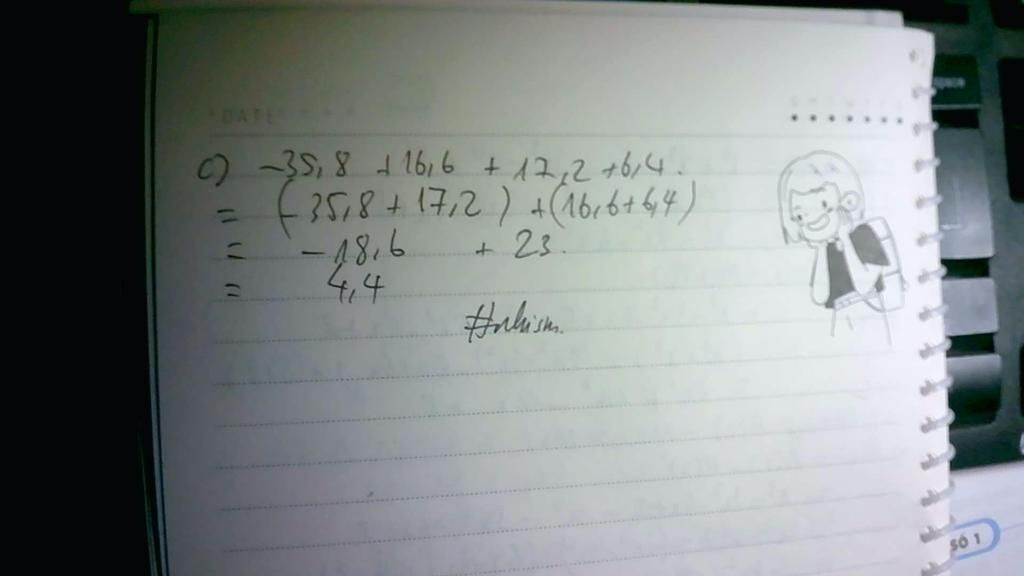 DATE
c) -35,8 +16,6 + 17,2 +6,4.
= (-35,8 + 17,2) +(16,6+6,4)
= -18,6 + 23.
= 4,4
SỐ 1